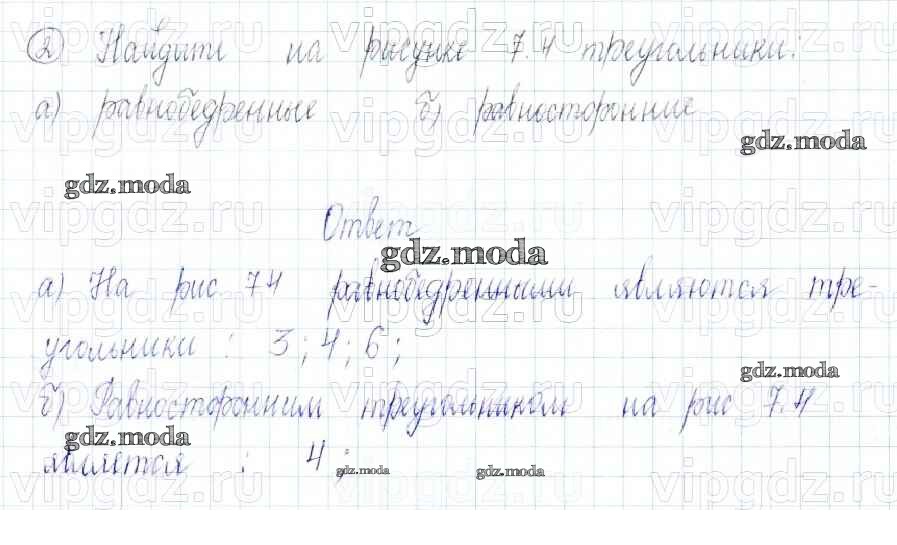 2 Найдите на рисунке 7.4 треугольники:
а) равнобедренные б) равносторонние
gdz.moda
gdz.moda
Ответ
gdz.moda
а) На рис 7.4 равнобедренными являются тре-
угольники : 3; 4; 6;
gdz.moda
б) Равносторонним треугольником на рис 7.4
gdz.moda
является : 4;
gdz.moda gdz.moda
vipgdz.ru